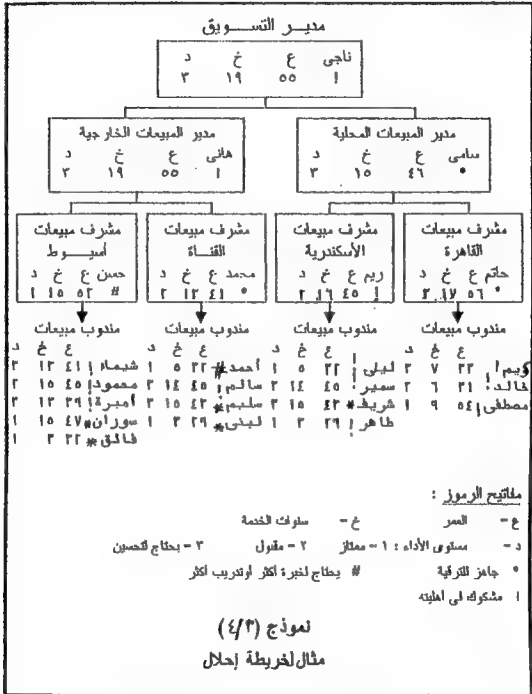 مديـــر التســـــويق
ناجى ع خ د
! ٥٥ ١٩ ٣
مدير المبيعات المحلية
سامى ع خ د
* ٤٦ ١٥ ٣
مدير المبيعات الخارجية
هانى ع خ د
! ٥٥ ١٩ ٣
مشرف مبيعات
القاهرة
حاتم ع خ د
* ٥٦ ١٧
مشرف مبيعات
الأسكندرية
ريم ع خ د
! ٤٥ ١٦ ٢
مشرف مبيعات
القنـــاة
محمد ع خ د
* ٤١ ١٢ ٢
مشرف مبيعات
أسيـــوط
حسن ع خ د
# ٥٢ ١٥ ١
مندوب مبيعات
ع خ د
! ٢٢ ٧ ٣
خالد ! ٣١ ٦ ٢
مصطفى ! ٥٤ ٩ ١
مندوب مبيعات
ع خ د
ليلى ! ٢٢ ٥ ١
سمير ! ٤٥ ١٤ ٣
شريف # ٤٣ ١٥ ٣
طاهر ! ٢٩ ٣ ١
مندوب مبيعات
ع خ د
أحمد # ٢٢ ٥ ١
سالم ! ٤٥ ١٤ ٣
سليم * ٤٣ ١٥ ٣
لبنى * ٢٩ ٣ ١
مندوب مبيعات
ع خ د
شيماء ! ٤١ ١٢ ٣
محمود ! ٤٥ ١٥ ٢
أميرة ! ٣٩ ١٣ ٣
سوزان * ٤٧ ١٥ ١
* ٢٢ ٣ ١
مفاتيح الرموز :
ع - العمر خ - سنوات الخدمة
د - مستوى الأداء : ١ - ممتاز ٢ - مقبول ٣ - يحتاج لتحسين
* جاهز للترقية # يحتاج لخبرة أكثر أوتدريب أكثر
! مشكوك فى أهليته
نموذج (٤/٣)
مثال لخريطة إحلال